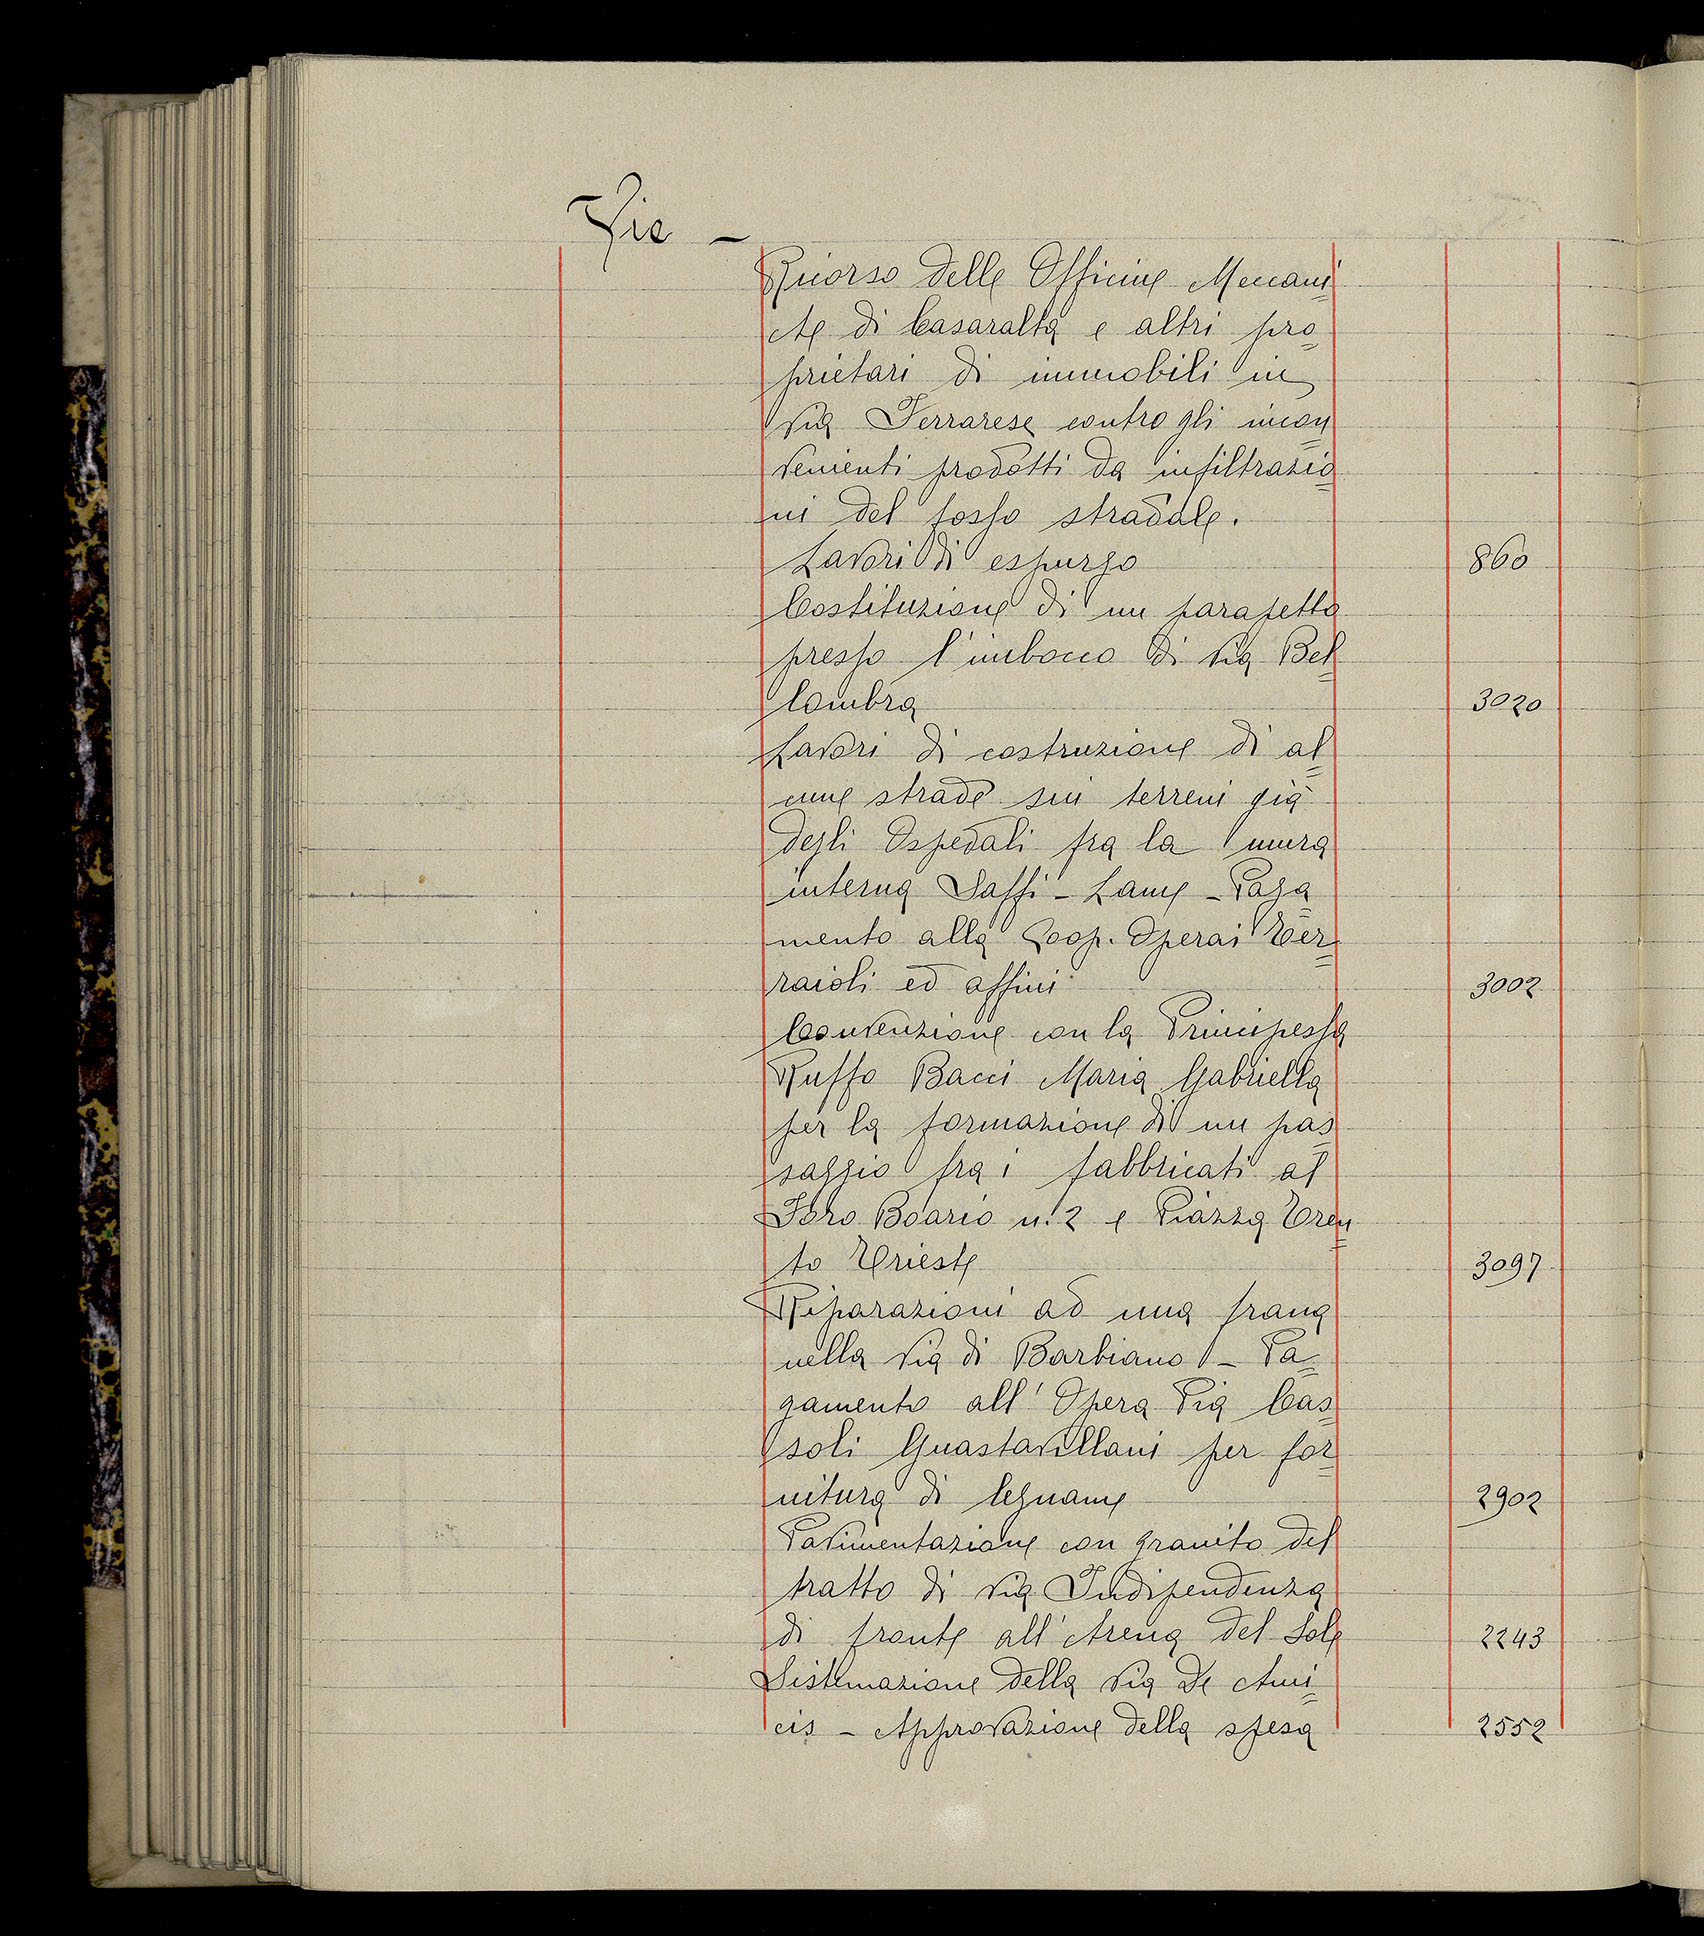 Vie -
Ricorso delle Officine Meccani=
che di Casaralta e altri pro=
prietari di immobili in
via Ferrarese contro gli incon=
venienti prodotti da infiltrazio=
ni del fosso stradale.
Lavori di espurgo 860
Costituzione di un parapetto
presso l'imbocco di via Bel=
lombra 3020
Lavori di costruzione di al=
cune strade sui terreni già
degli Ospedali fra la mura
interna Saffi - Lame - Paga
mento alla Coop. Operai Ter=
raioli ed affini 3002
Convenzione con la Principessa
Ruffo Bacci Maria Gabriella
per la formazione di un pas=
saggio fra i fabbricati al
Foro Boario n. 2 e Piazza Tren=
to Trieste 3097
Riparazioni ad una frana
nella via di Barbiano - Pa=
gamento all'Opera Pia Cas=
soli Guastavillani per for=
nitura di legname 2902
Pavimentazione con granito del
tratto di via Indipendenza
di fronte all'Arena del Sole 2243
Sistemazione della via De Ami=
cis - Approvazione della spesa 2552